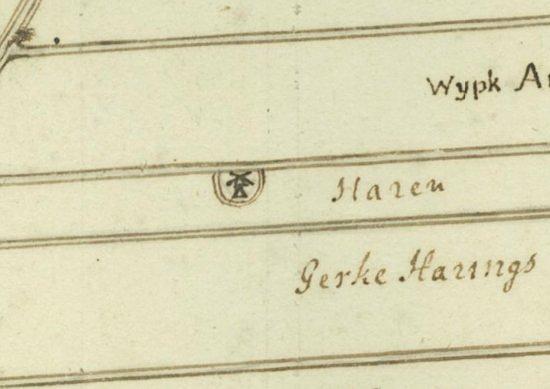 Wypk
Haren
Gerke Harings